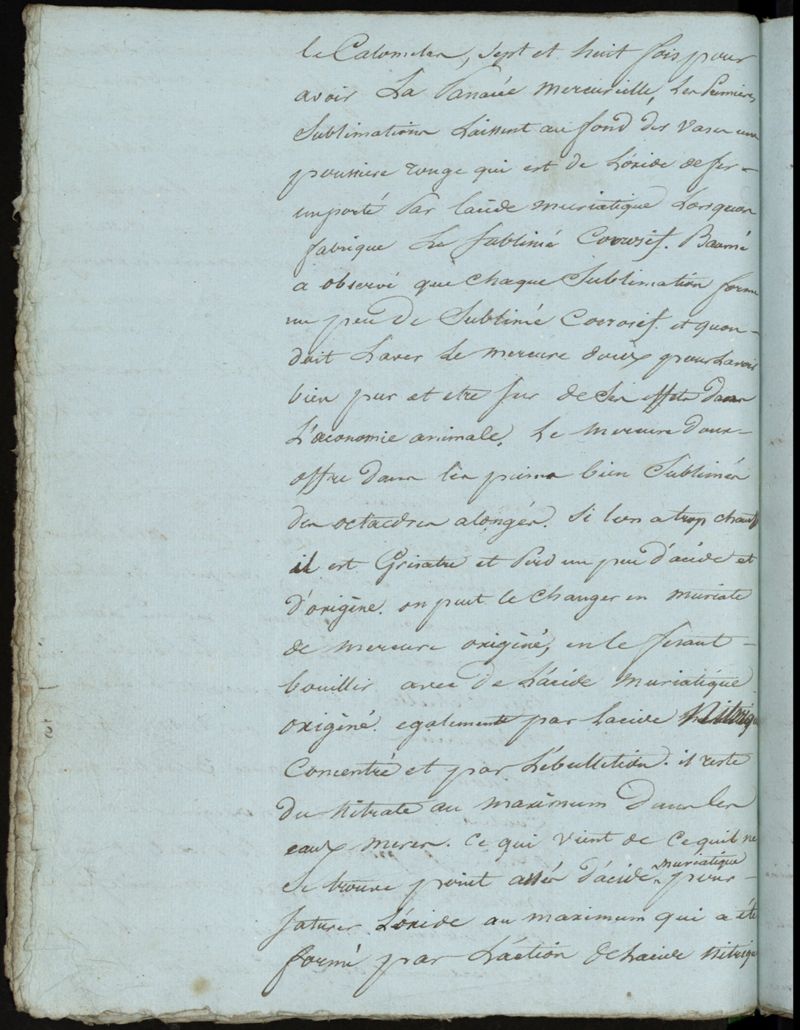 le Calomelas, Sept et huit fois pour
avoir La Panacée mercurielle, les premieres
Sublimations Laissent au fond des vases une
poussiere rouge qui est de L'oxide de fer
emporté Par lacide muriatique Lorsquon
fabrique Le Sublimé Corrosif. Baumé
a observé que chaque Sublimation forme
un peu de Sublimé Corrosif. et quon
doit Laver Le mercure doux pour Lavoir
bien pur et etre sur de Ses effets dans
L'œconomie animale. Le mercure doux
offre dans les pains bien Sublimés
des octaedres alongés. Si lon a trop chauffé
il est Grisatre et Perd un peu d'acide et
d'oxigène. on peut le changer en muriate
de mercure oxigéné, en le fesant
bouillir avec de L'acide muriatique
oxigéné. egalement par lacide Nitrique
Concentré et par L'ebullition. il reste
du Nitrate au maximum dans les
eaux meres. ce qui vient de ce quil ne
Se trouve point assés d'acide muriatique pour
saturer L'oxide au maximum qui a été
formé par L'action de Lacide nitrique